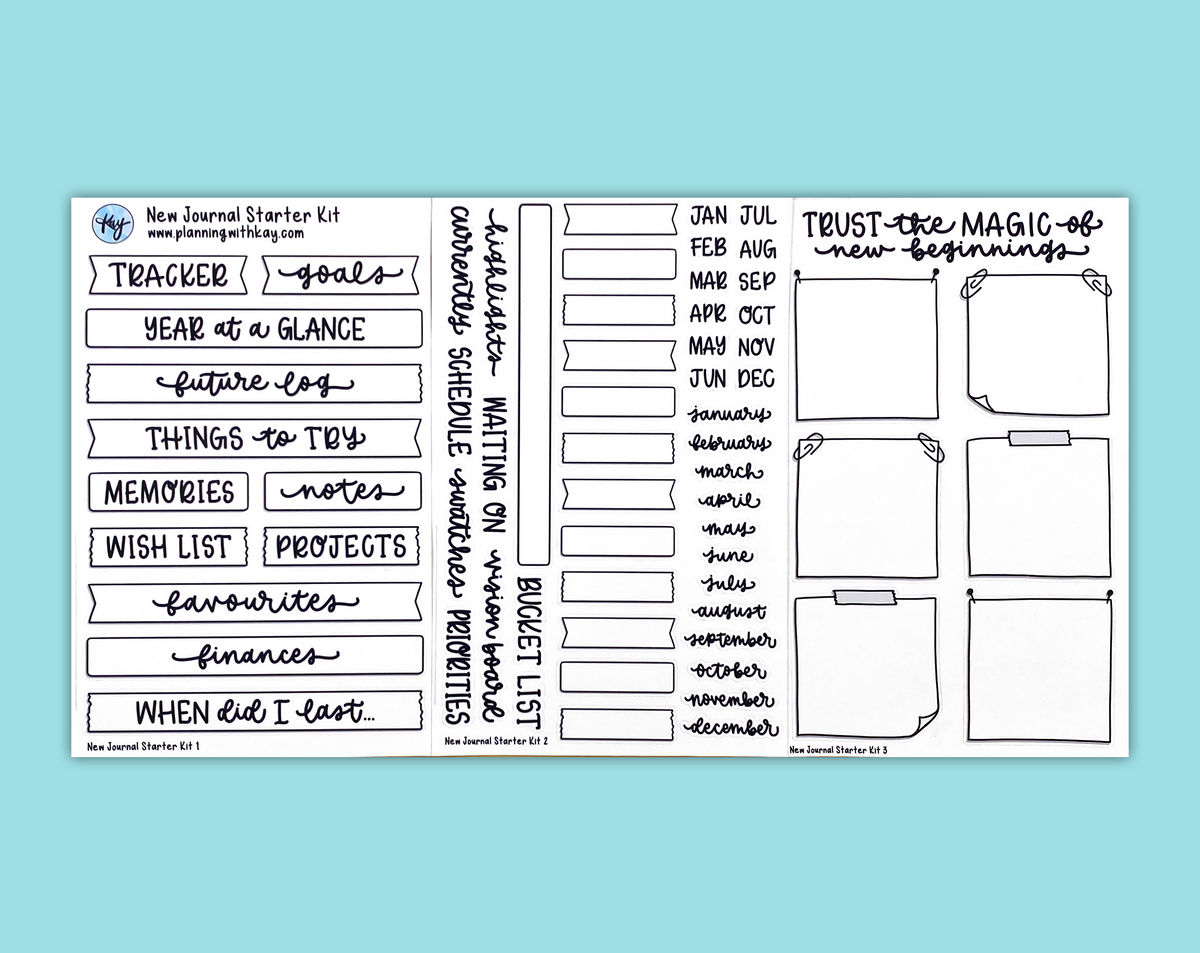 Kay
New Journal Starter Kit
www.planningwithkay.com
TRACKER
goals
YEAR at a GLANCE
future log
THINGS to TRY
MEMORIES
notes
WISH LIST
PROJECTS
favourites
finances
WHEN did I last...
New Journal Starter Kit 1
currently SCHEDULE swatches PRIORITIES
highlights WAITING ON vision board
BUCKET LIST
JAN JUL
FEB AUG
MAR SEP
APR OCT
MAY NOV
JUN DEC
january
february
march
april
may
june
july
august
september
october
november
december
New Journal Starter Kit 2
TRUST the MAGIC of
new beginnings
New Journal Starter Kit 3